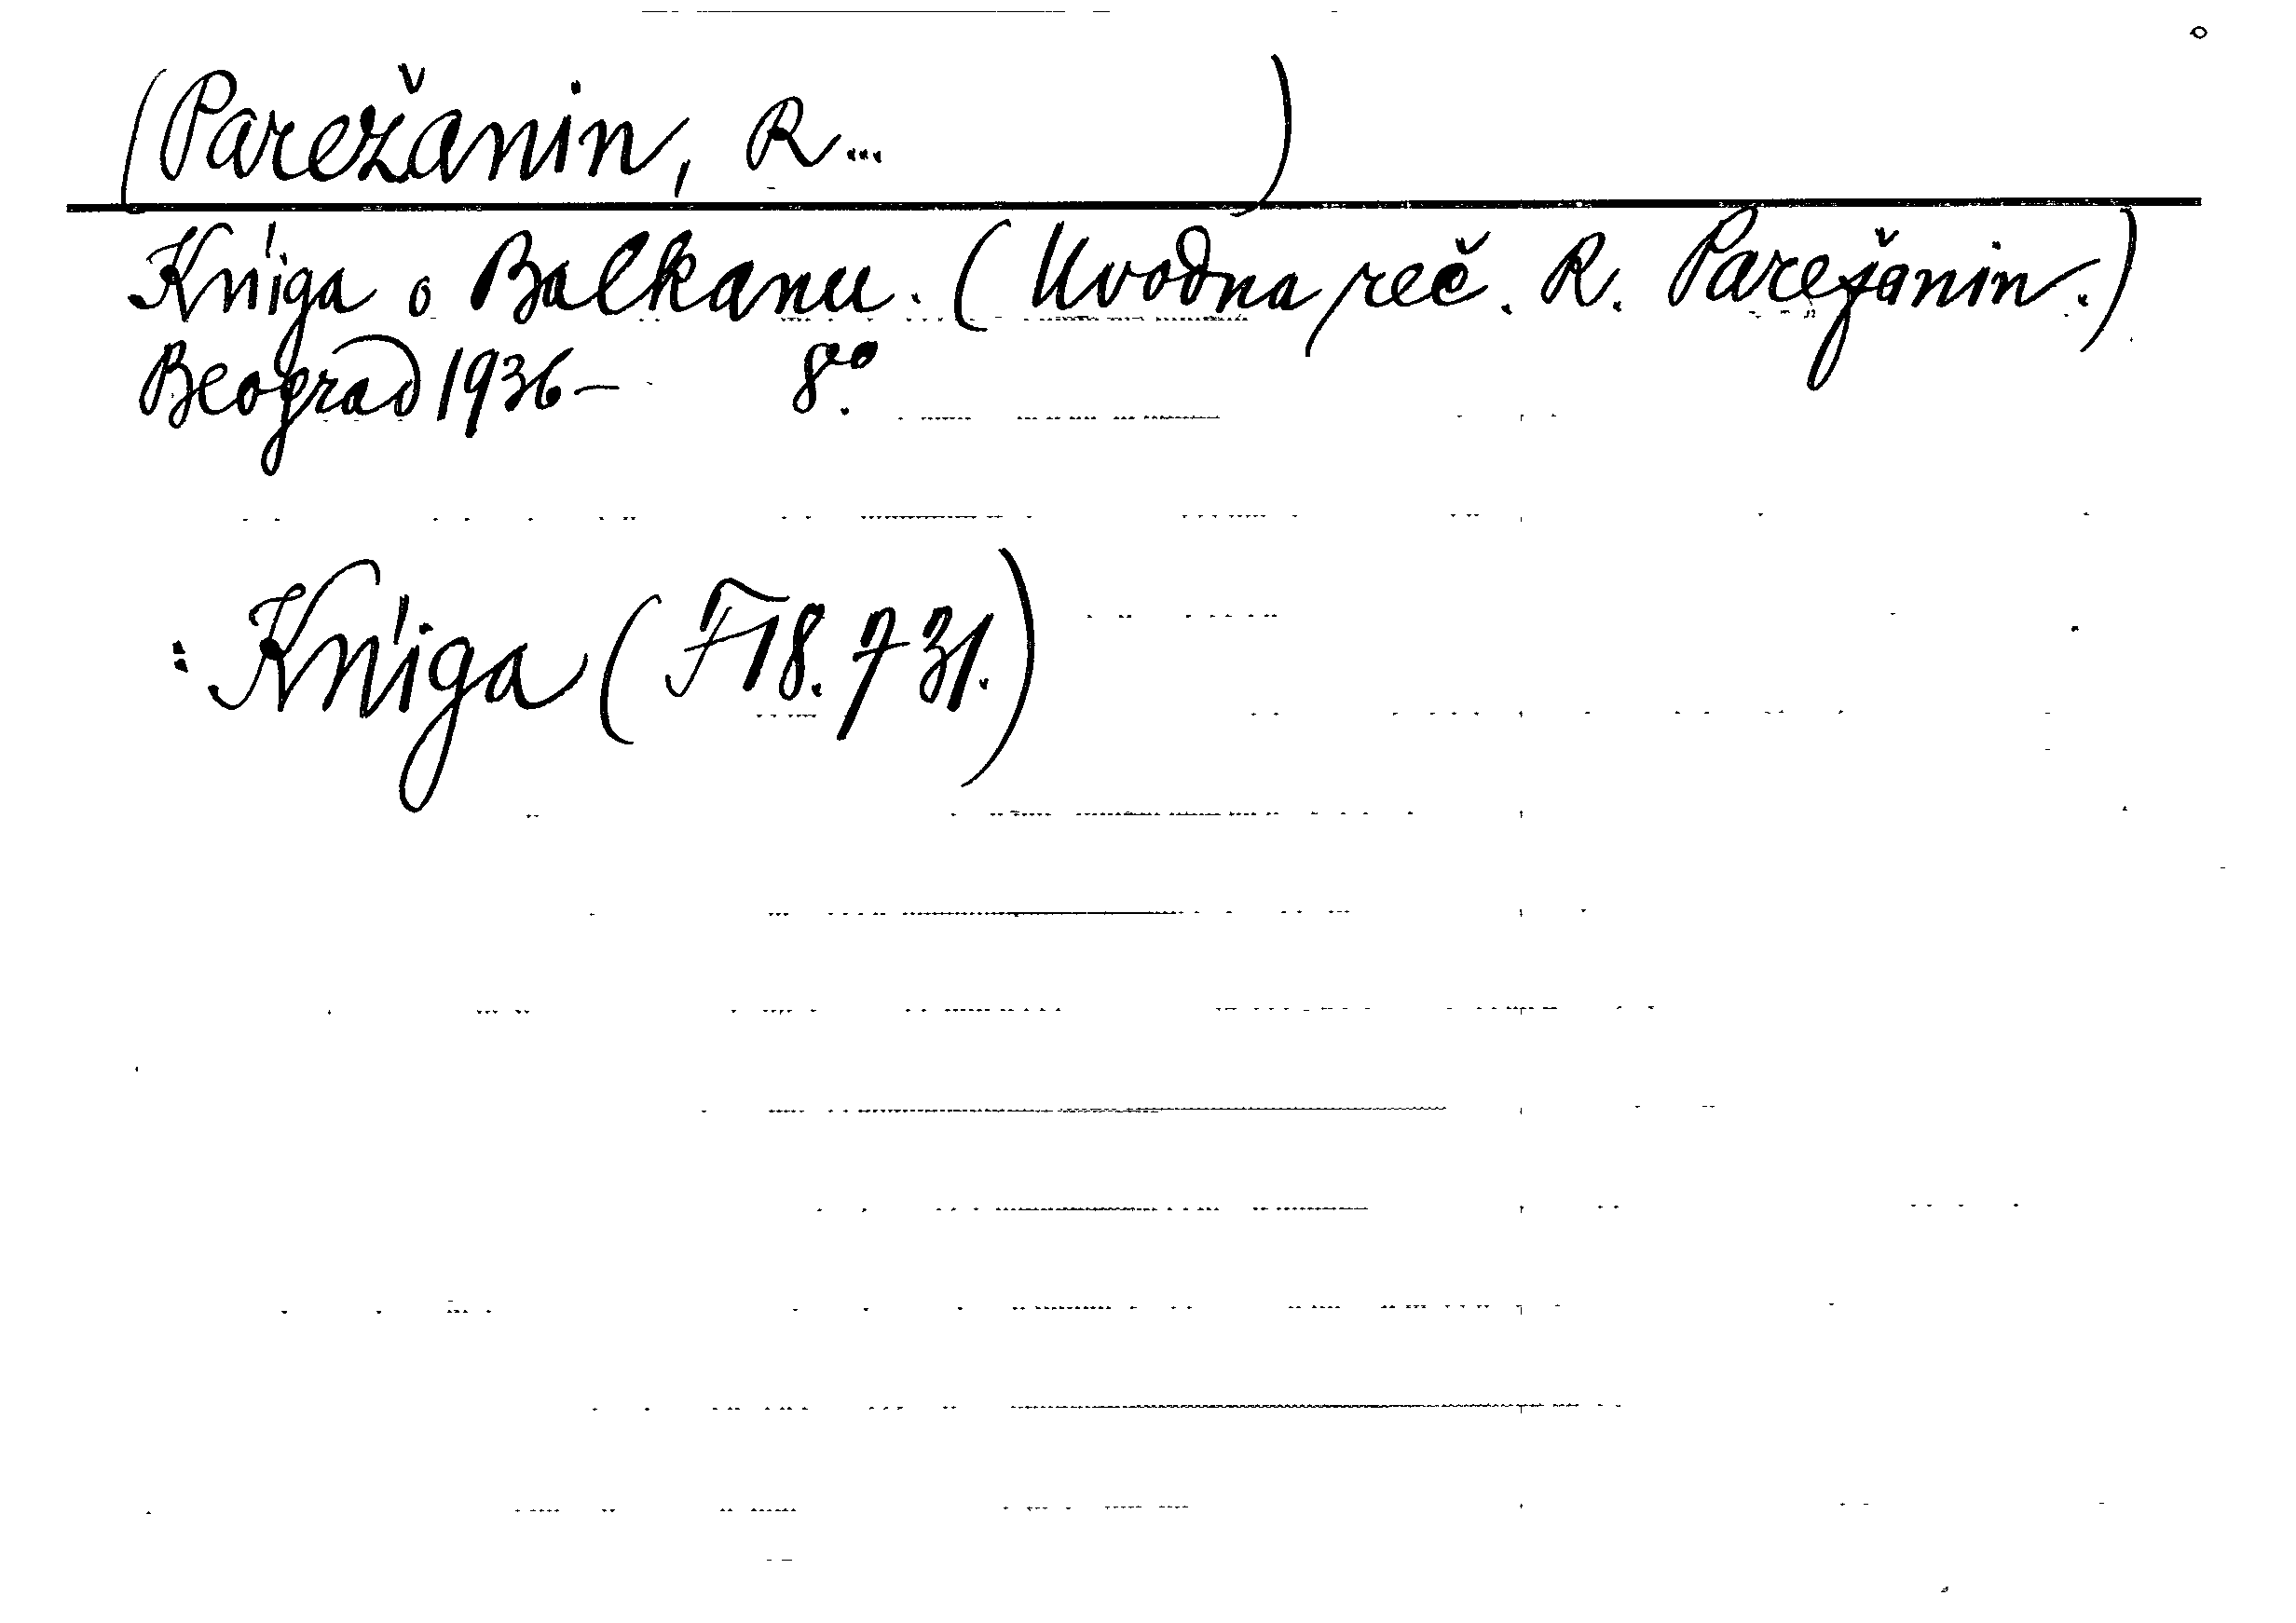 (Parežanin, R...)
Kńiga o Balkanu. (Uvodna reč. R. Parežanin.)
Beograd 1936- 8º.
: Kńiga (F18.731.)